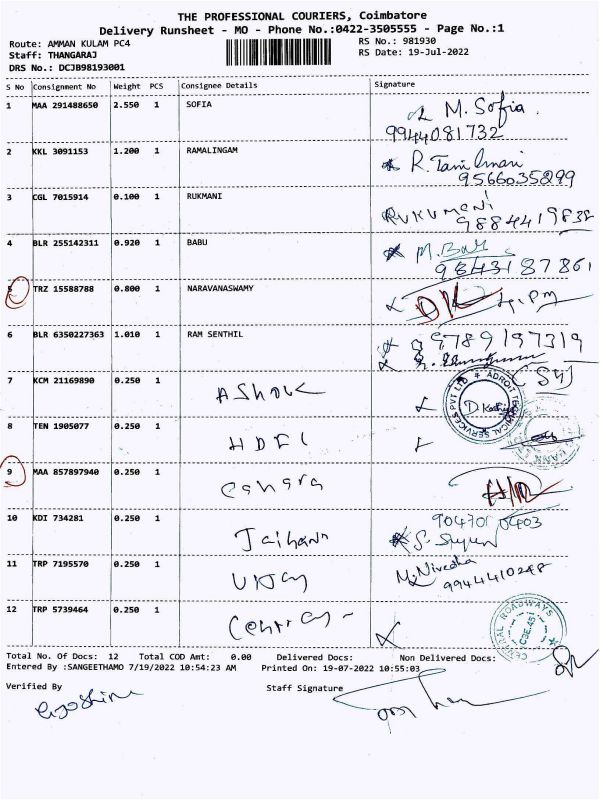 THE PROFESSIONAL COURIERS, Coimbatore
Delivery Runsheet - MO - Phone No.:0422-3505555 - Page No.:1
Route: AMMAN KULAM PC4
RS No.: 981930
Staff: THANGARAJ
RS Date: 19-Jul-2022
DRS No.: DCJB98193001
S No Consignment No Weight PCS Consignee Details Signature
1 MAA 291488650 2.550 1 SOFIA M. Sofia
9944081732
2 KKL 3091153 1.200 1 RAMALINGAM
9566035299
3 CGL 7015914 0.100 1 RUKMANI RUKUMANI
9884419838
4 BLR 255142311 0.920 1 BABU
9843187861
5 TRZ 15588788 0.800 1 NARAVANASWAMY
6 BLR 6350227363 1.010 1 RAM SENTHIL 9789197319
7 KCM 21169890 0.250 1 ASHOK
ADROIT TECHNICAL SERVICES PVT LTD
8 TEN 1905077 0.250 1 HDFC
9 MAA 857897940 0.250 1 Canara
10 KDI 734281 0.250 1
11 TRP 7195570 0.250 1 VIJAY M. Nivedha
9944410248
12 TRP 5739464 0.250 1
CENTRAL ROADWAYS
CBE.45
Total No. Of Docs: 12 Total COD Amt: 0.00 Delivered Docs: Non Delivered Docs:
Entered By :SANGEETHAMO 7/19/2022 10:54:23 AM Printed On: 19-07-2022 10:55:03
Verified By Staff Signature